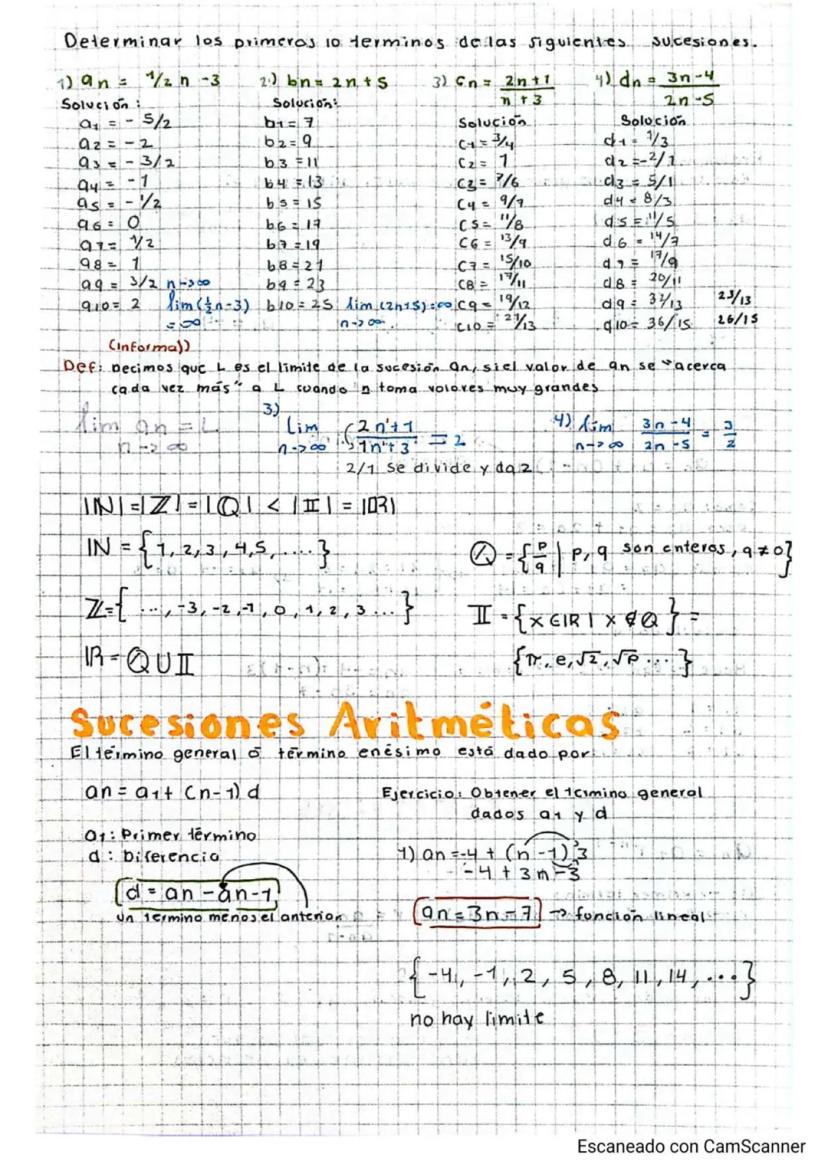 Determinar los primeros 10 terminos de las siguientes sucesiones.
1) an = 1/2 n -3
Solución:
a1 = - 5/2
a2 = - 2
a3 = - 3/2
a4 = - 1
a5 = - 1/2
a6 = 0
a7 = 1/2
a8 = 1
a9 = 3/2
a10 = 2
n->∞
lim (1/2 n-3)
= ∞
2) bn = 2n + 5
Solución:
b1 = 7
b2 = 9
b3 = 11
b4 = 13
b5 = 15
b6 = 17
b7 = 19
b8 = 21
b9 = 23
b10 = 25
lim (2n+5) = ∞
n->∞
3) Cn = 2n+1 / n+3
Solución
C1 = 3/4
C2 = 1
C3 = 7/6
C4 = 9/7
C5 = 11/8
C6 = 13/9
C7 = 15/10
C8 = 17/11
C9 = 19/12
C10 = 21/13
4) dn = 3n-4 / 2n-5
Solución
d1 = 1/3
d2 = -2/1
d3 = 5/1
d4 = 8/3
d5 = 11/5
d6 = 14/7
d7 = 17/9
d8 = 20/11
d9 = 32/13 23/13
d10 = 36/15 26/15
(Informal)
Def: Decimos que L es el límite de la sucesión an, si el valor de an se "acerca
cada vez más" a L cuando n toma valores muy grandes
lim an = L
n->∞
3) Lim (2n+1 / 1n+3 = 2
n->∞
2/1 se divide y da 2
4) lim 3n-4 / 2n-5 = 3/2
n->∞
|ℕ| = |ℤ| = |ℚ| < |𝕀| = |ℝ|
ℕ = {1, 2, 3, 4, 5, ....}
ℚ = {p/q | p, q son enteros, q ≠ 0}
ℤ = {..., -3, -2, -1, 0, 1, 2, 3 ...}
𝕀 = {x ∈ ℝ | x ∉ ℚ} =
{π, e, √2, √p ...}
ℝ = ℚ ∪ 𝕀
Sucesiones Aritméticas
El término general ó término enésimo está dado por:
an = a1 + (n-1) d
a1: Primer término
d: Diferencia
d = an - an-1
un termino menos el anterior
Ejercicio: Obtener el término general
dados a1 y d
1) an = -4 + (n -1) 3
-4 + 3n -3
an = 3n-7 -> función lineal
{-4, -1, 2, 5, 8, 11, 14, ...}
no hay limite
Escaneado con CamScanner